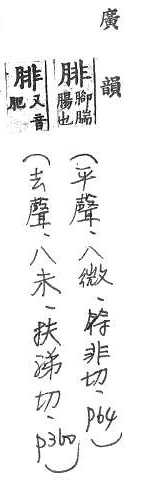 廣韻
腓 腳腨腸也
(平聲、八微、符非切、P64)
腓 又音肥
(去聲、八未、扶涕切、P360)